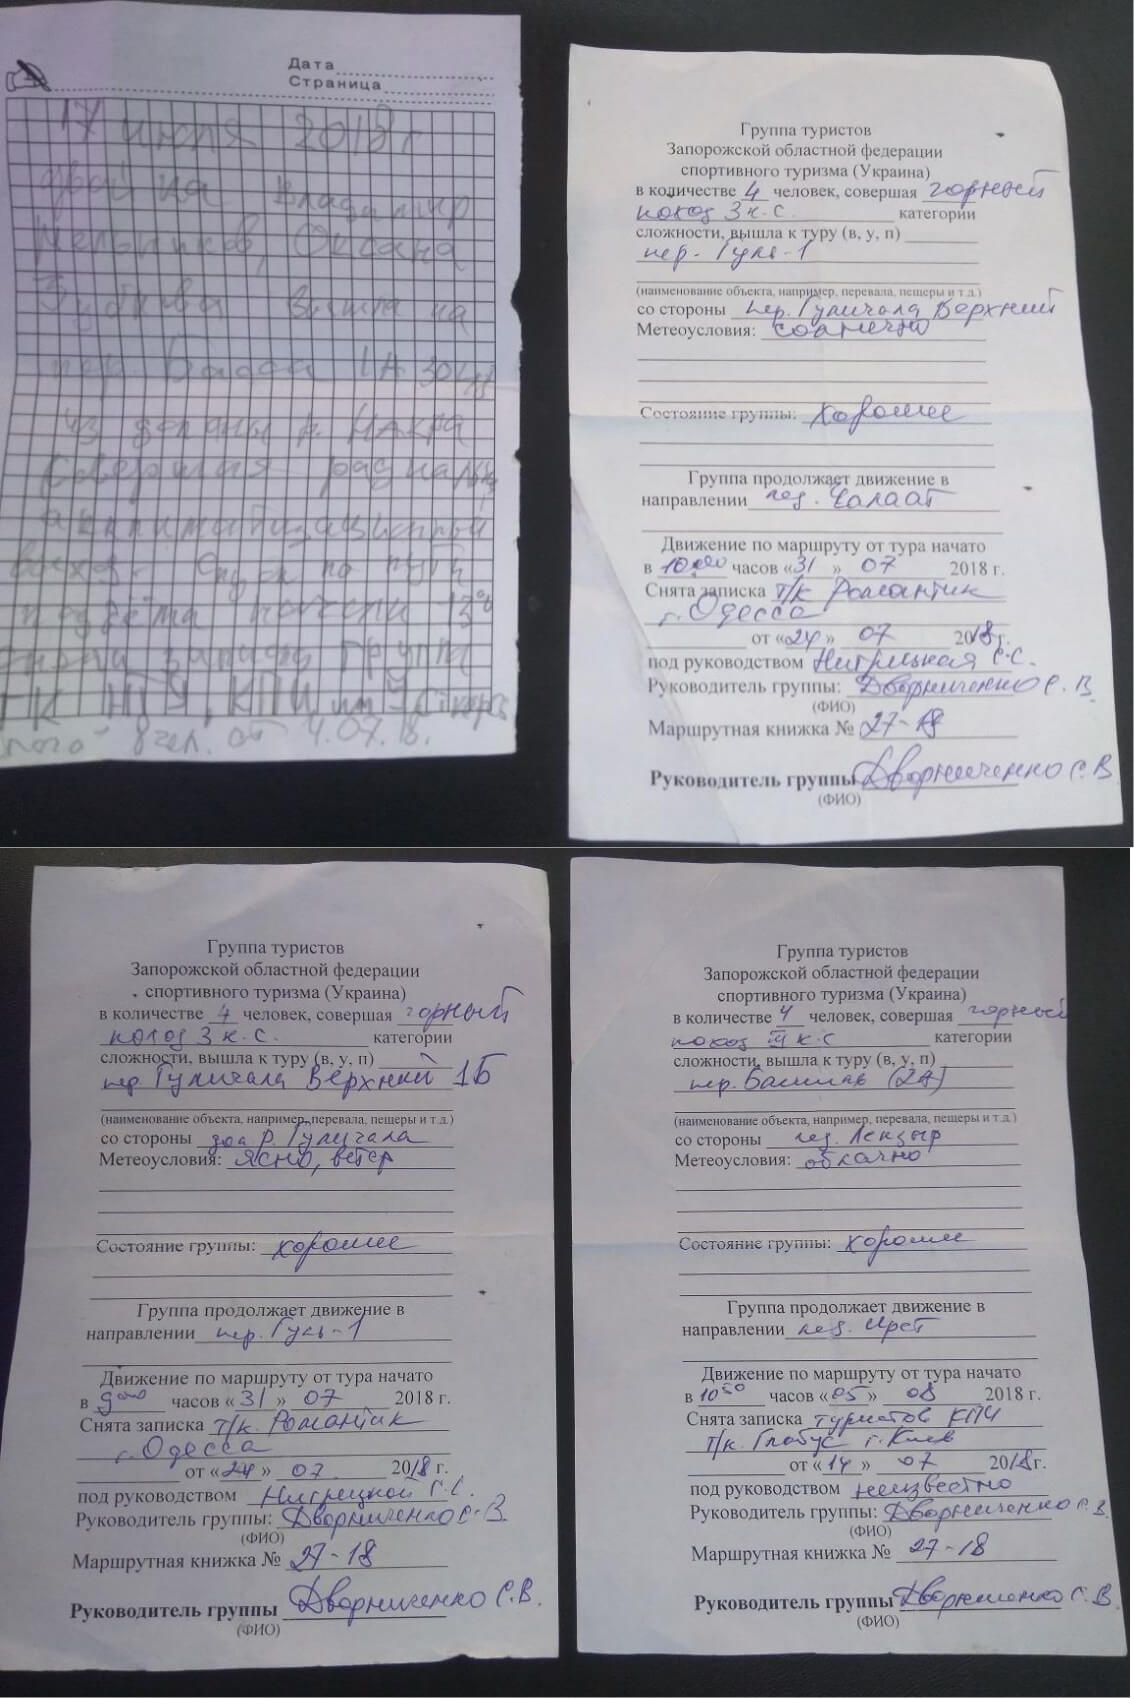 Дата
Страница
17 июля 2018 г
двойка Владимир
Мельников, Оксана
Зубрева вышла на
пер. Басса 1А
из долины р. Накра
совершая радиальн
акклиматизационный
выход. Спуск по пути
подъёма начали 13
сняли записку группа
8 чел. от 4.07.18.
Группа туристов
Запорожской областной федерации
спортивного туризма (Украина)
в количестве 4 человек, совершая горный
поход 3 к.с. категории
сложности, вышла к туру (в, у, п)
пер. Гуль-1
(наименование объекта, например, перевала, пещеры и т.д.)
со стороны пер. Гуличала Верхний
Метеоусловия: солнечно
Состояние группы: хорошее
Группа продолжает движение в
направлении лед. Чалаат
Движение по маршруту от тура начато
в 10:00 часов «31» 07 2018 г.
Снята записка т/к Романтик
г. Одесса
от «24» 07 2018 г.
под руководством Нигрицкая С.С.
Руководитель группы: Дворниченко С.В.
(ФИО)
Маршрутная книжка № 27-18
Руководитель группы Дворниченко С.В
(ФИО)
Группа туристов
Запорожской областной федерации
спортивного туризма (Украина)
в количестве 4 человек, совершая горный
поход 3 к.с. категории
сложности, вышла к туру (в, у, п)
пер. Гуличала Верхний 1Б
(наименование объекта, например, перевала, пещеры и т.д.)
со стороны дол. р. Гуличала
Метеоусловия: ясно, ветер
Состояние группы: хорошее
Группа продолжает движение в
направлении пер. Гуль-1
Движение по маршруту от тура начато
в 9 00 часов «31» 07 2018 г.
Снята записка т/к. Романтик
г. Одесса
от «24» 07 2018 г.
под руководством Нигрицкой С.С.
Руководитель группы: Дворниченко С.В.
(ФИО)
Маршрутная книжка № 27-18
Руководитель группы Дворниченко С.В.
(ФИО)
Группа туристов
Запорожской областной федерации
спортивного туризма (Украина)
в количестве 4 человек, совершая горный
поход III к.с категории
сложности, вышла к туру (в, у, п)
пер. Башиль (2А)
(наименование объекта, например, перевала, пещеры и т.д.)
со стороны лед. Лекзыр
Метеоусловия: облачно
Состояние группы: хорошее
Группа продолжает движение в
направлении лед.
Движение по маршруту от тура начато
в 10 50 часов «05» 08 2018 г.
Снята записка туристов КПИ
т/к. Глобус г. Киев
от «14» 07 2018 г.
под руководством неизвестно
Руководитель группы: Дворниченко С.В.
(ФИО)
Маршрутная книжка № 27-18
Руководитель группы Дворниченко С.В.
(ФИО)